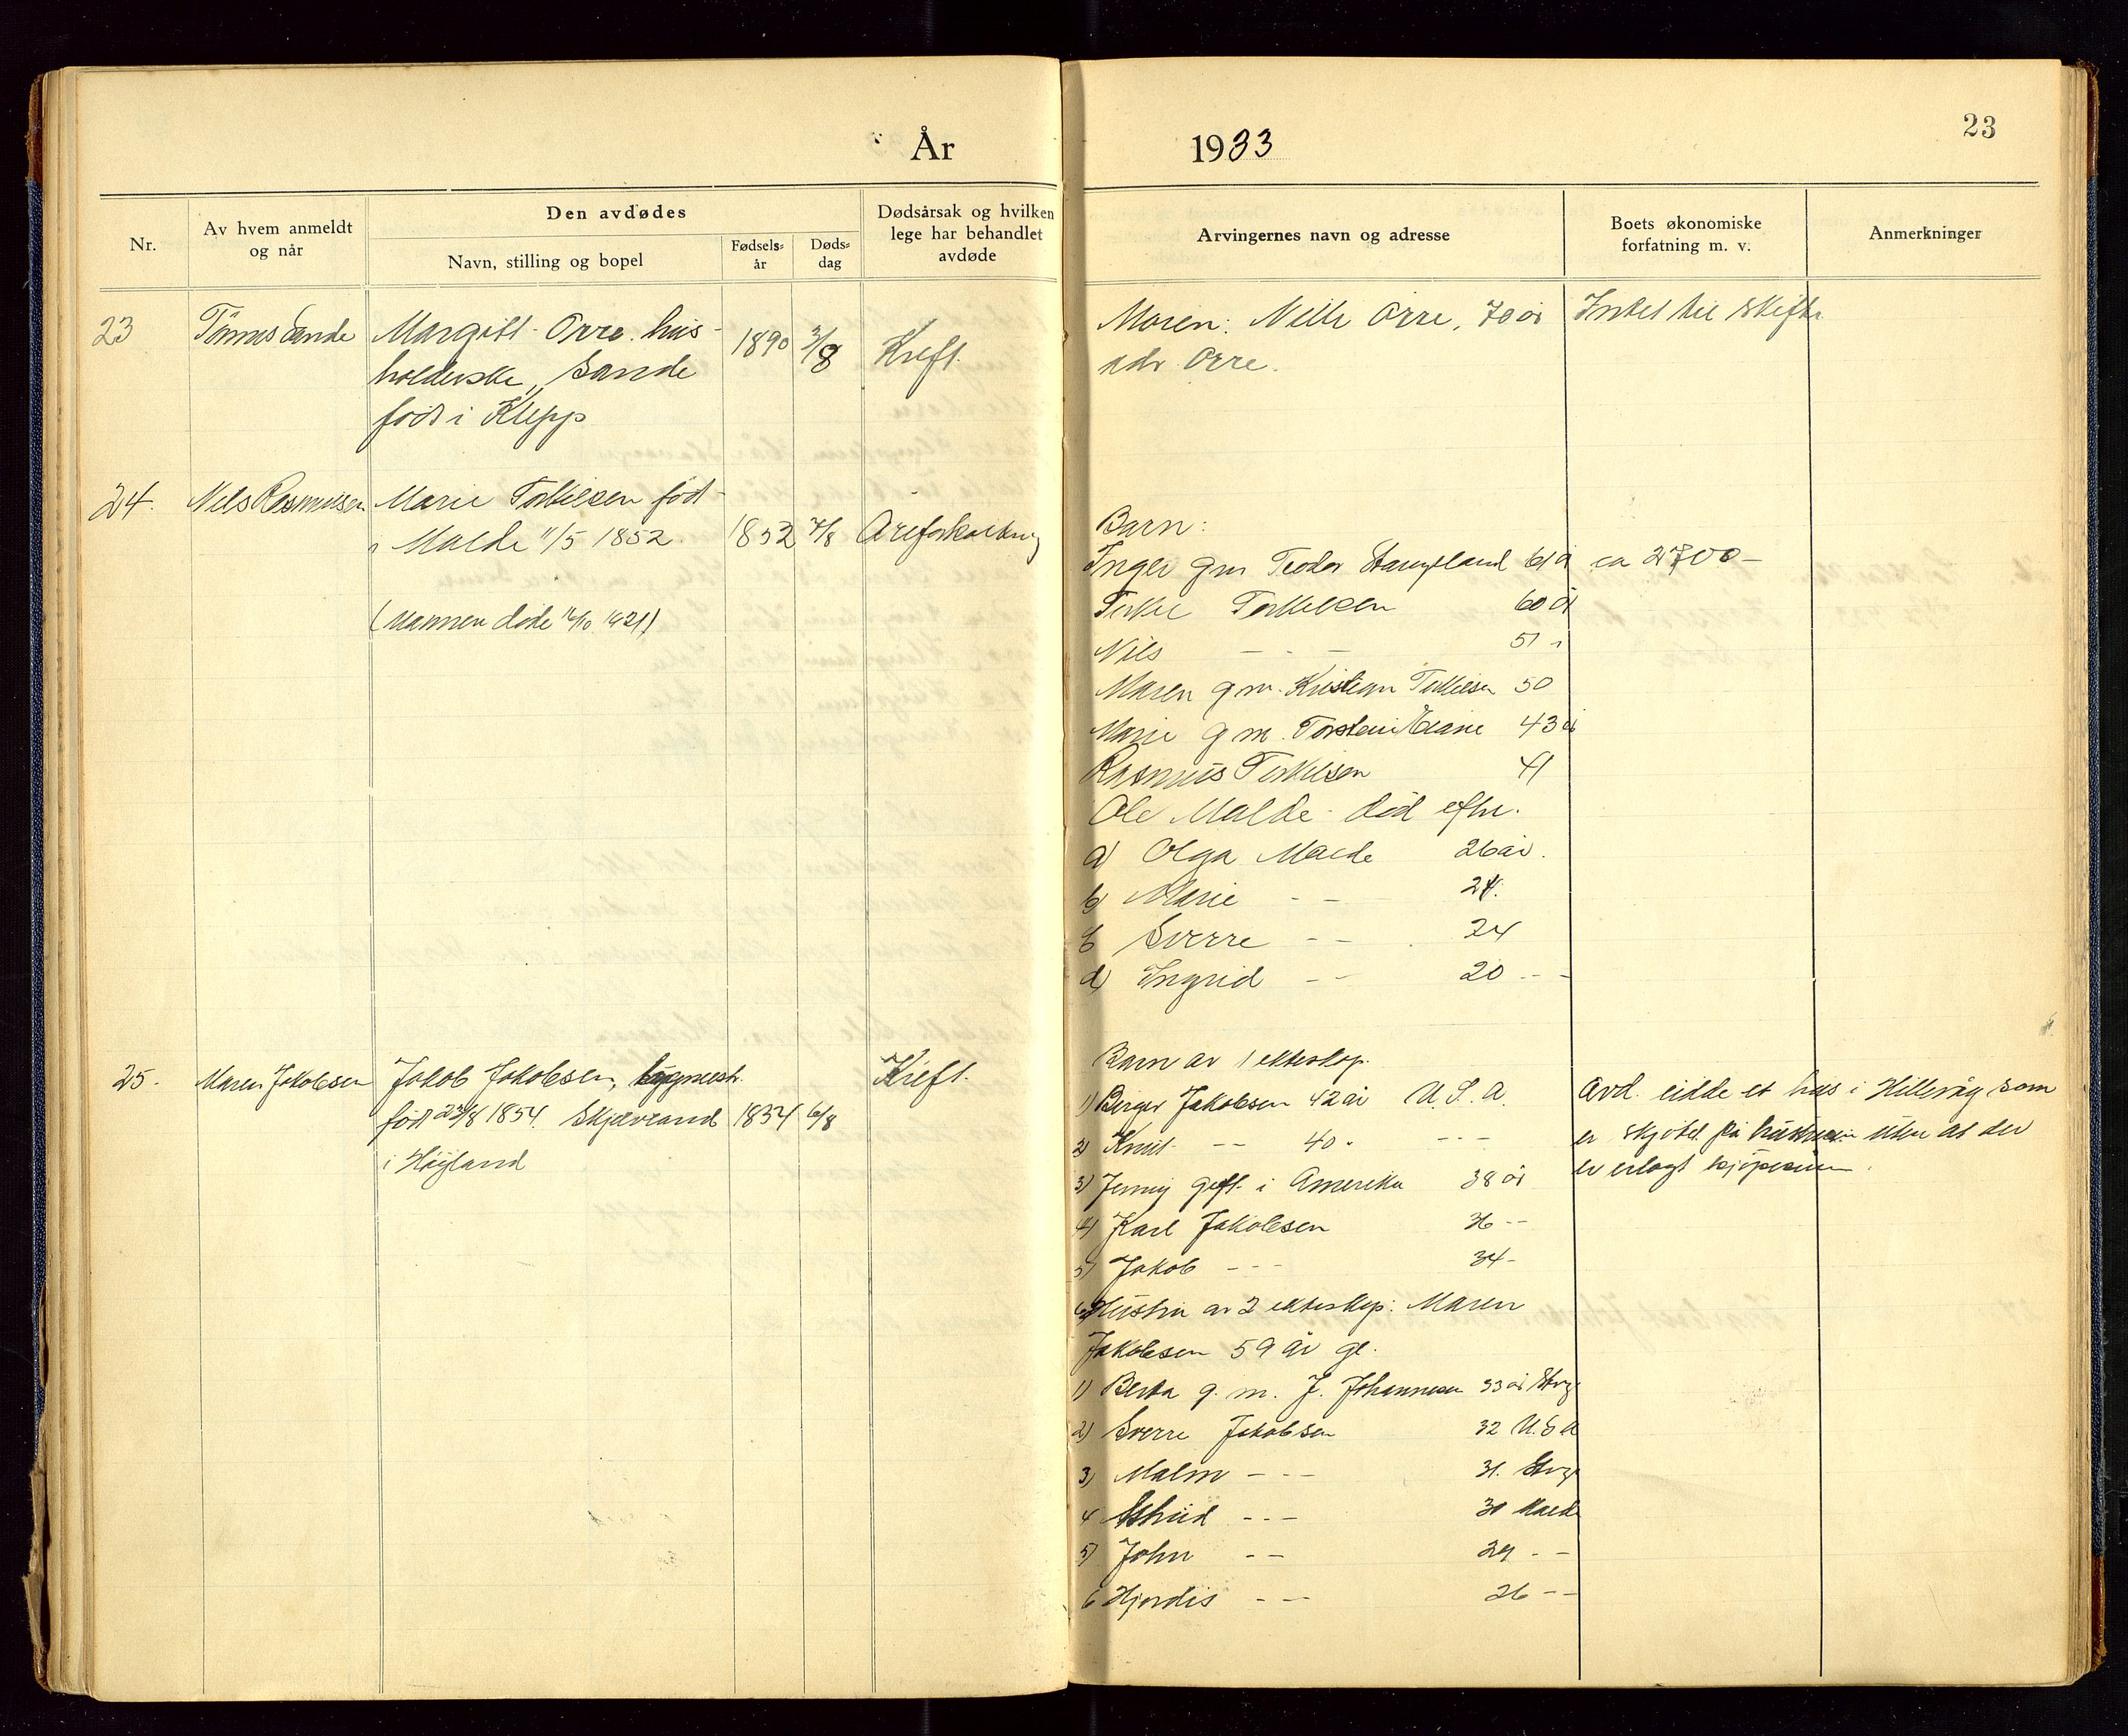 År
1933
23
Nr.
Av hvem anmeldt
og når
Den avdødes
Navn, stilling og bopel
Fødsels-
år
Døds-
dag
Dødsårsak og hvilken
lege har behandlet
avdøde
Arvingernes navn og adresse
Boets økonomiske
forfatning m. v.
Anmerkninger
23
Tönnes Sande
Margitt Orre. hus-
holderske, Sande
född i Klepp
1890
3/8
Kreft.
Moren: Nille Orre, 70 år
adr Orre.
Intet til skifte
24.
Nils Rasmussen
Marie Torkilsen född
i Malde 11/5 1852
(Mannen döde 1921)
1852
7/8
Areforkalkning
Barn:
Inger gm Teodor Stangeland 61 å
Torkel Torkilsen 60 år
Nils - - - 51 "
Maren gm. Kristian Torkilsen 50
Marie gm. Torstein 43 år
Rasmus Torkilsen 41
Ole Malde död efter.
a) Olga Malde 26 år.
b) Marie - - 24.
c) Sverre - - 24
d) Ingrid - - 20 - -
ca 2700-
25.
Maren Jakobsen
Jakob Jakobsen, bygmestr.
född 23/8 1854. Skjæveland
i Höyland
1854
6/8
Kreft.
Barn av 1 ekteskap.
1) Birger Jakobsen 42 år U.S.A.
2) Knut - - 40 - - - -
3) Jenny gift i Amerika 38 år
4) Karl Jakobsen 36 - -
5) Jakob - - - 34 -
6) Hustru av 2 ekteskap: Maren
Jakobsen 59 år gl.
1) Berta g. m. J. Johannesen 33 år Stvgr
2) Sverre Jakobsen 32 U.S.A
3) Malm - - - 31. Stvgr
4 Astrid - - - 30 Malde
5) John - - 29 - -
6 Hjördis - - - 26 - -
Avd. eidde et hus i Hillevåg som
er skjötet på hustruen uten at der
er erlagt kjöpesum.